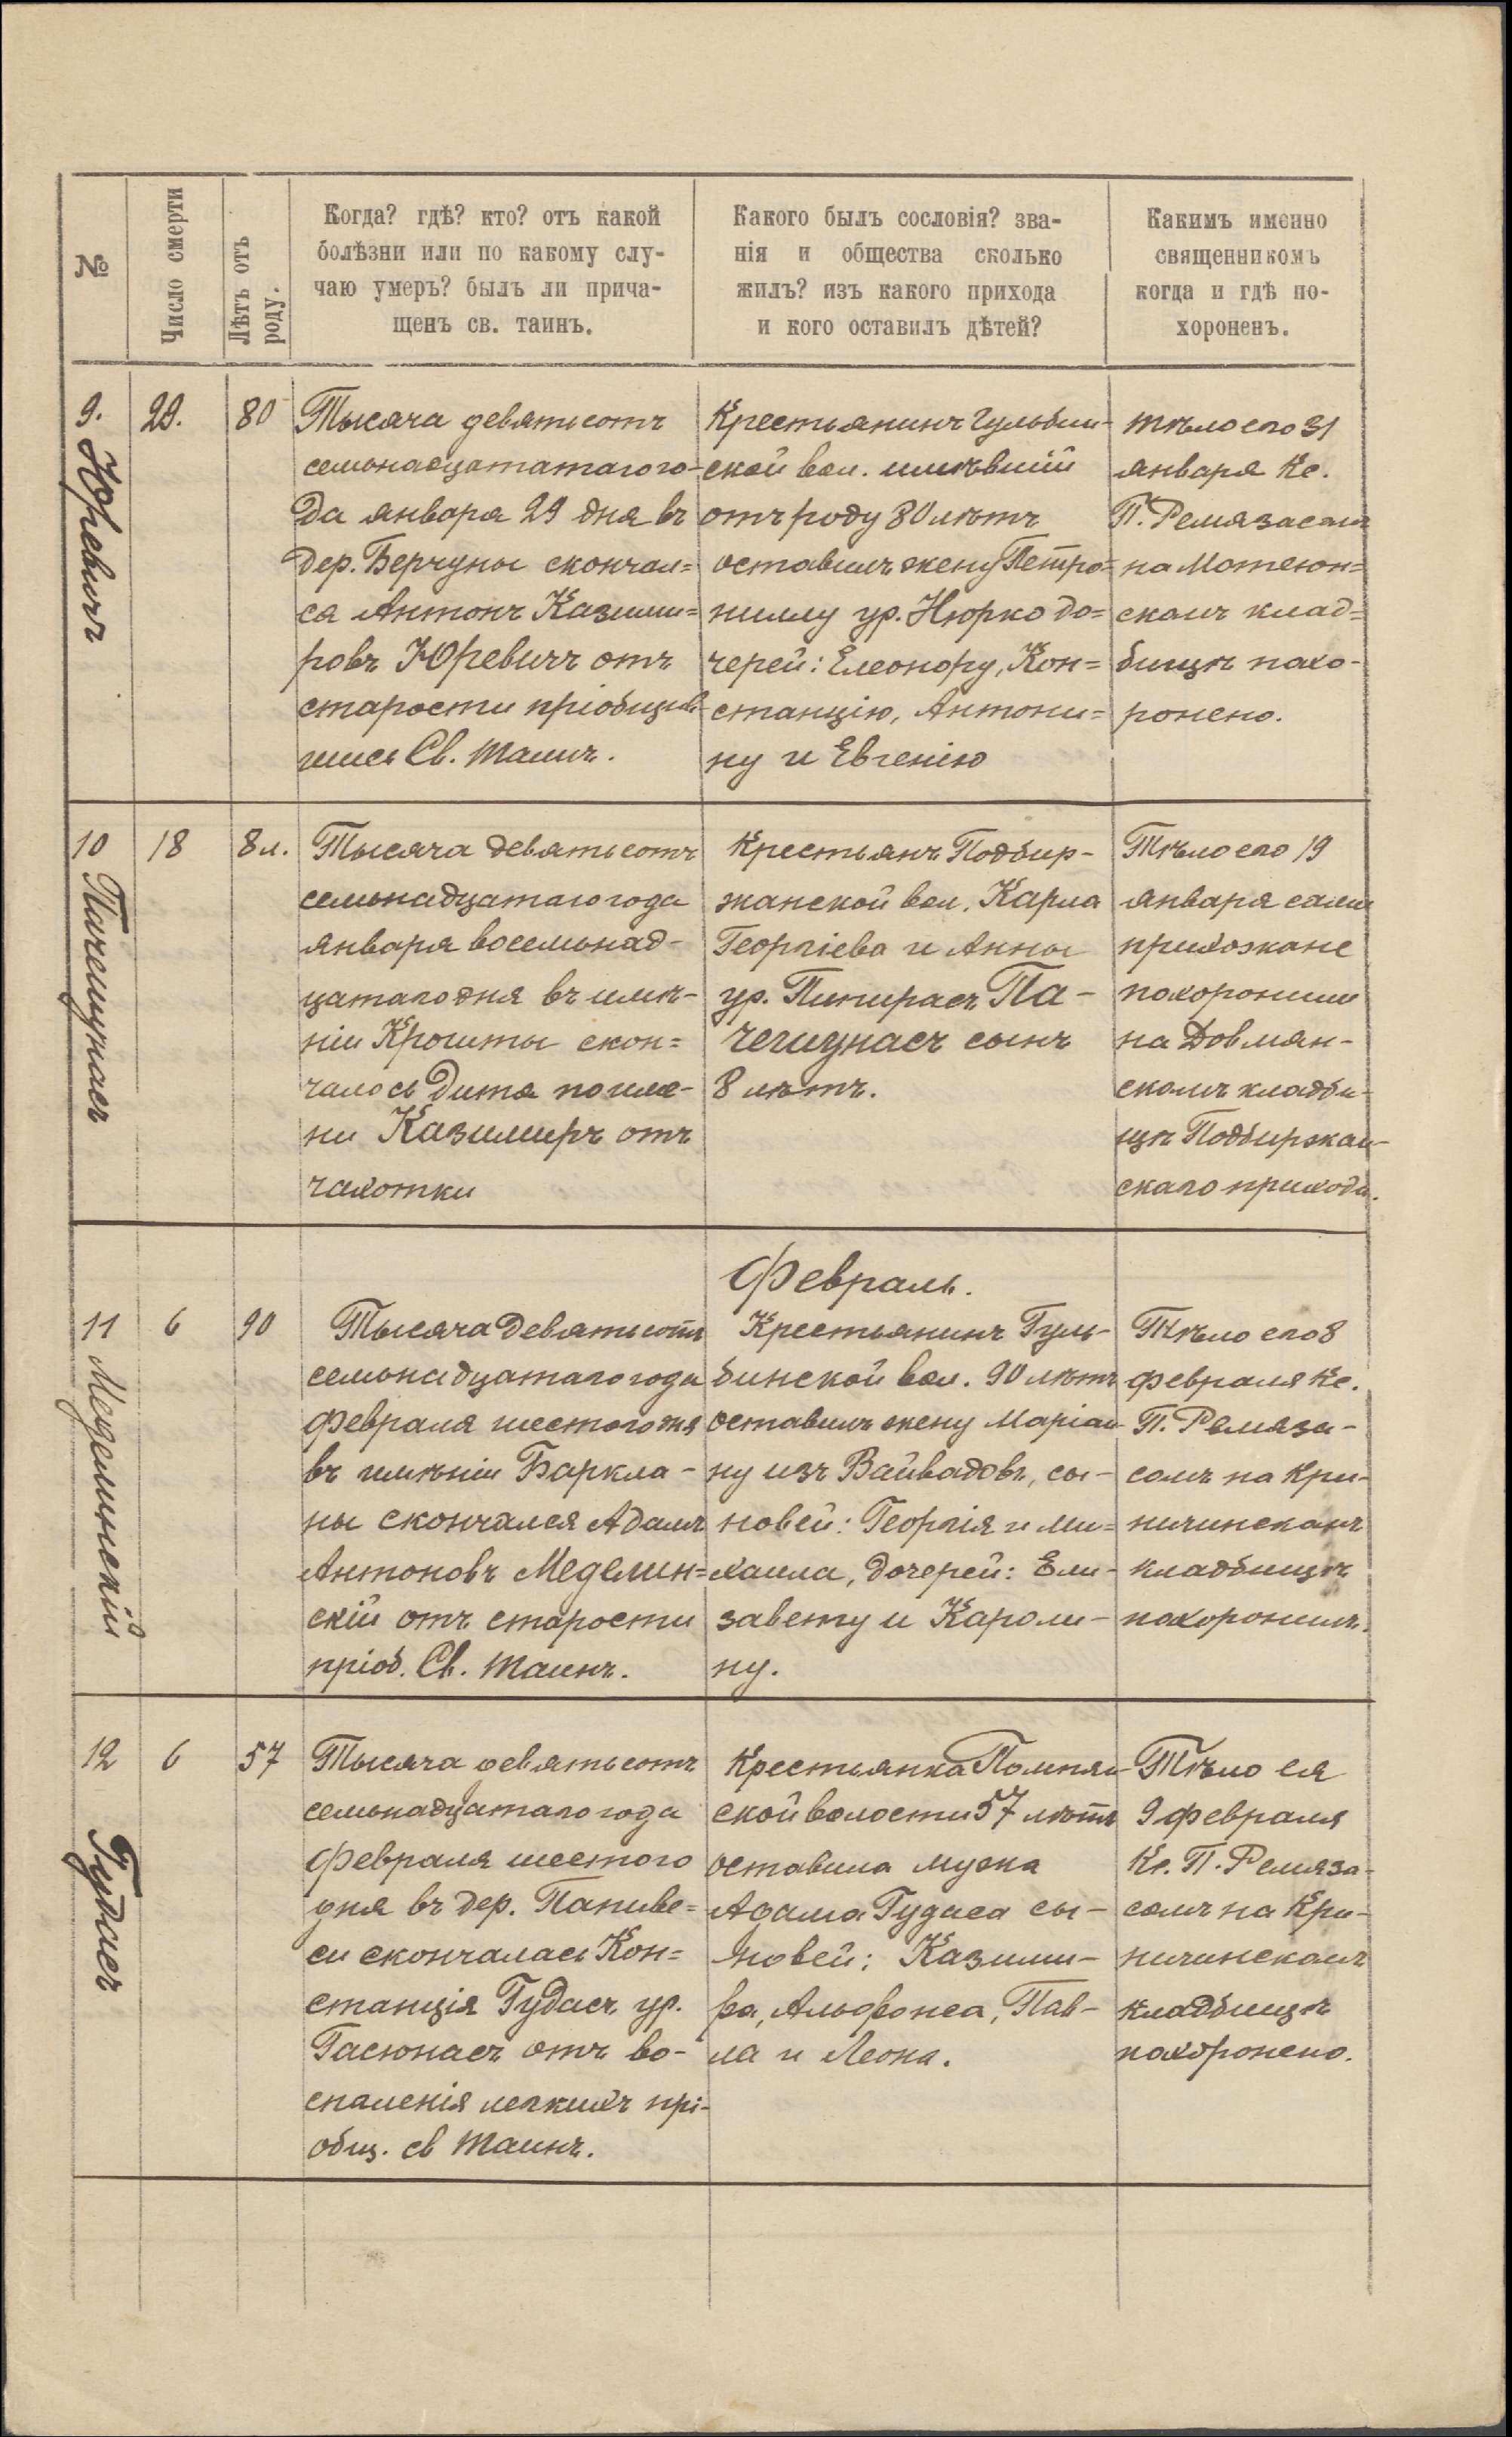 №
Число смерти
Лѣтъ отъ
роду.
Когда? гдѣ? кто? отъ какой
болѣзни или по какому слу-
чаю умеръ? былъ ли прича-
щенъ св. таинъ.
Какого былъ сословія? зва-
нія и общества сколько
жилъ? изъ какого прихода
и кого оставилъ дѣтей?
Какимъ именно
священникомъ
когда и гдѣ по-
хороненъ.
9. Юревичъ
29.
80
Тысяча девятьсотъ
семьнадцататагого-
да января 29 дня въ
дер. Берчуны скончал=
ся Антонъ Казими=
ровъ Юревичъ отъ
старости пріобщив-
шись Св. Таинъ.
Крестьянинъ Гульбин-
ской вол. имѣвшій
отъ роду 80 лѣтъ
оставилъ жену Петро=
ниллу ур. Нюрко до=
черей: Елеонору, Кон=
станцію, Антони=
ну и Евгенію
тѣло его 31
января Кс.
П. Ремязасомъ
на Мотеюн=
скомъ клад=
бищѣ похо-
ронено.
10 Пачемцнасъ
18
8 л.
Тысяча девятьсотъ
семьнадцатаго года
января восемьнад-
цатаго дня въ имѣ-
ніи Крошты скон=
чалось дитя по име-
ни Казимиръ отъ
чахотки
Крестьянъ Подбир-
жанской вол. Карла
Георгіева и Анны
ур. Пипирасъ Па-
сынъ
8 лѣтъ.
Тѣло его 19
января сами
прихожане
похоронили
на Довмян-
скомъ кладби-
щѣ Подбиржан-
скаго прихода.
Февраль.
11 Меделинскій
6
90
Тысяча девятьсотъ
семьнадцатаго года
февраля шестого дня
въ имѣніи Баркла-
ны скончался Адамъ
Антоновъ Меделин=
скій отъ старости
пріоб. Св. Таинъ.
Крестьянинъ Гуль-
бинской вол. 90 лѣтъ
оставилъ жену Маріан-
ну изъ Вайвадовъ, сы-
новей: Георгія и Ми=
хаила, дочерей: Ели-
завету и Кароли-
ну.
Тѣло его 8
февраля Кс.
П. Ремяза-
сомъ на Кри-
ничинскомъ
кладбищѣ
похоронилъ.
12 Гудасъ
6
57
Тысяча девятьсотъ
семьнадцатаго года
февраля шестого
дня въ дер. Папиве=
си скончалась Кон=
станція Гудасъ ур.
Гасюнасъ отъ во-
спаленія легкихъ прі-
общ. св Таинъ.
Крестьянка Помпян-
ской волости 57 лѣтъ
оставила мужа
Адама Гудаса сы-
новей: Казими-
ра, Альфонса, Пав-
ла и Леона.
Тѣло ея
9 февраля
Кс. П. Ремяза-
сомъ на Кри-
ничинскомъ
кладбищѣ
похоронено.